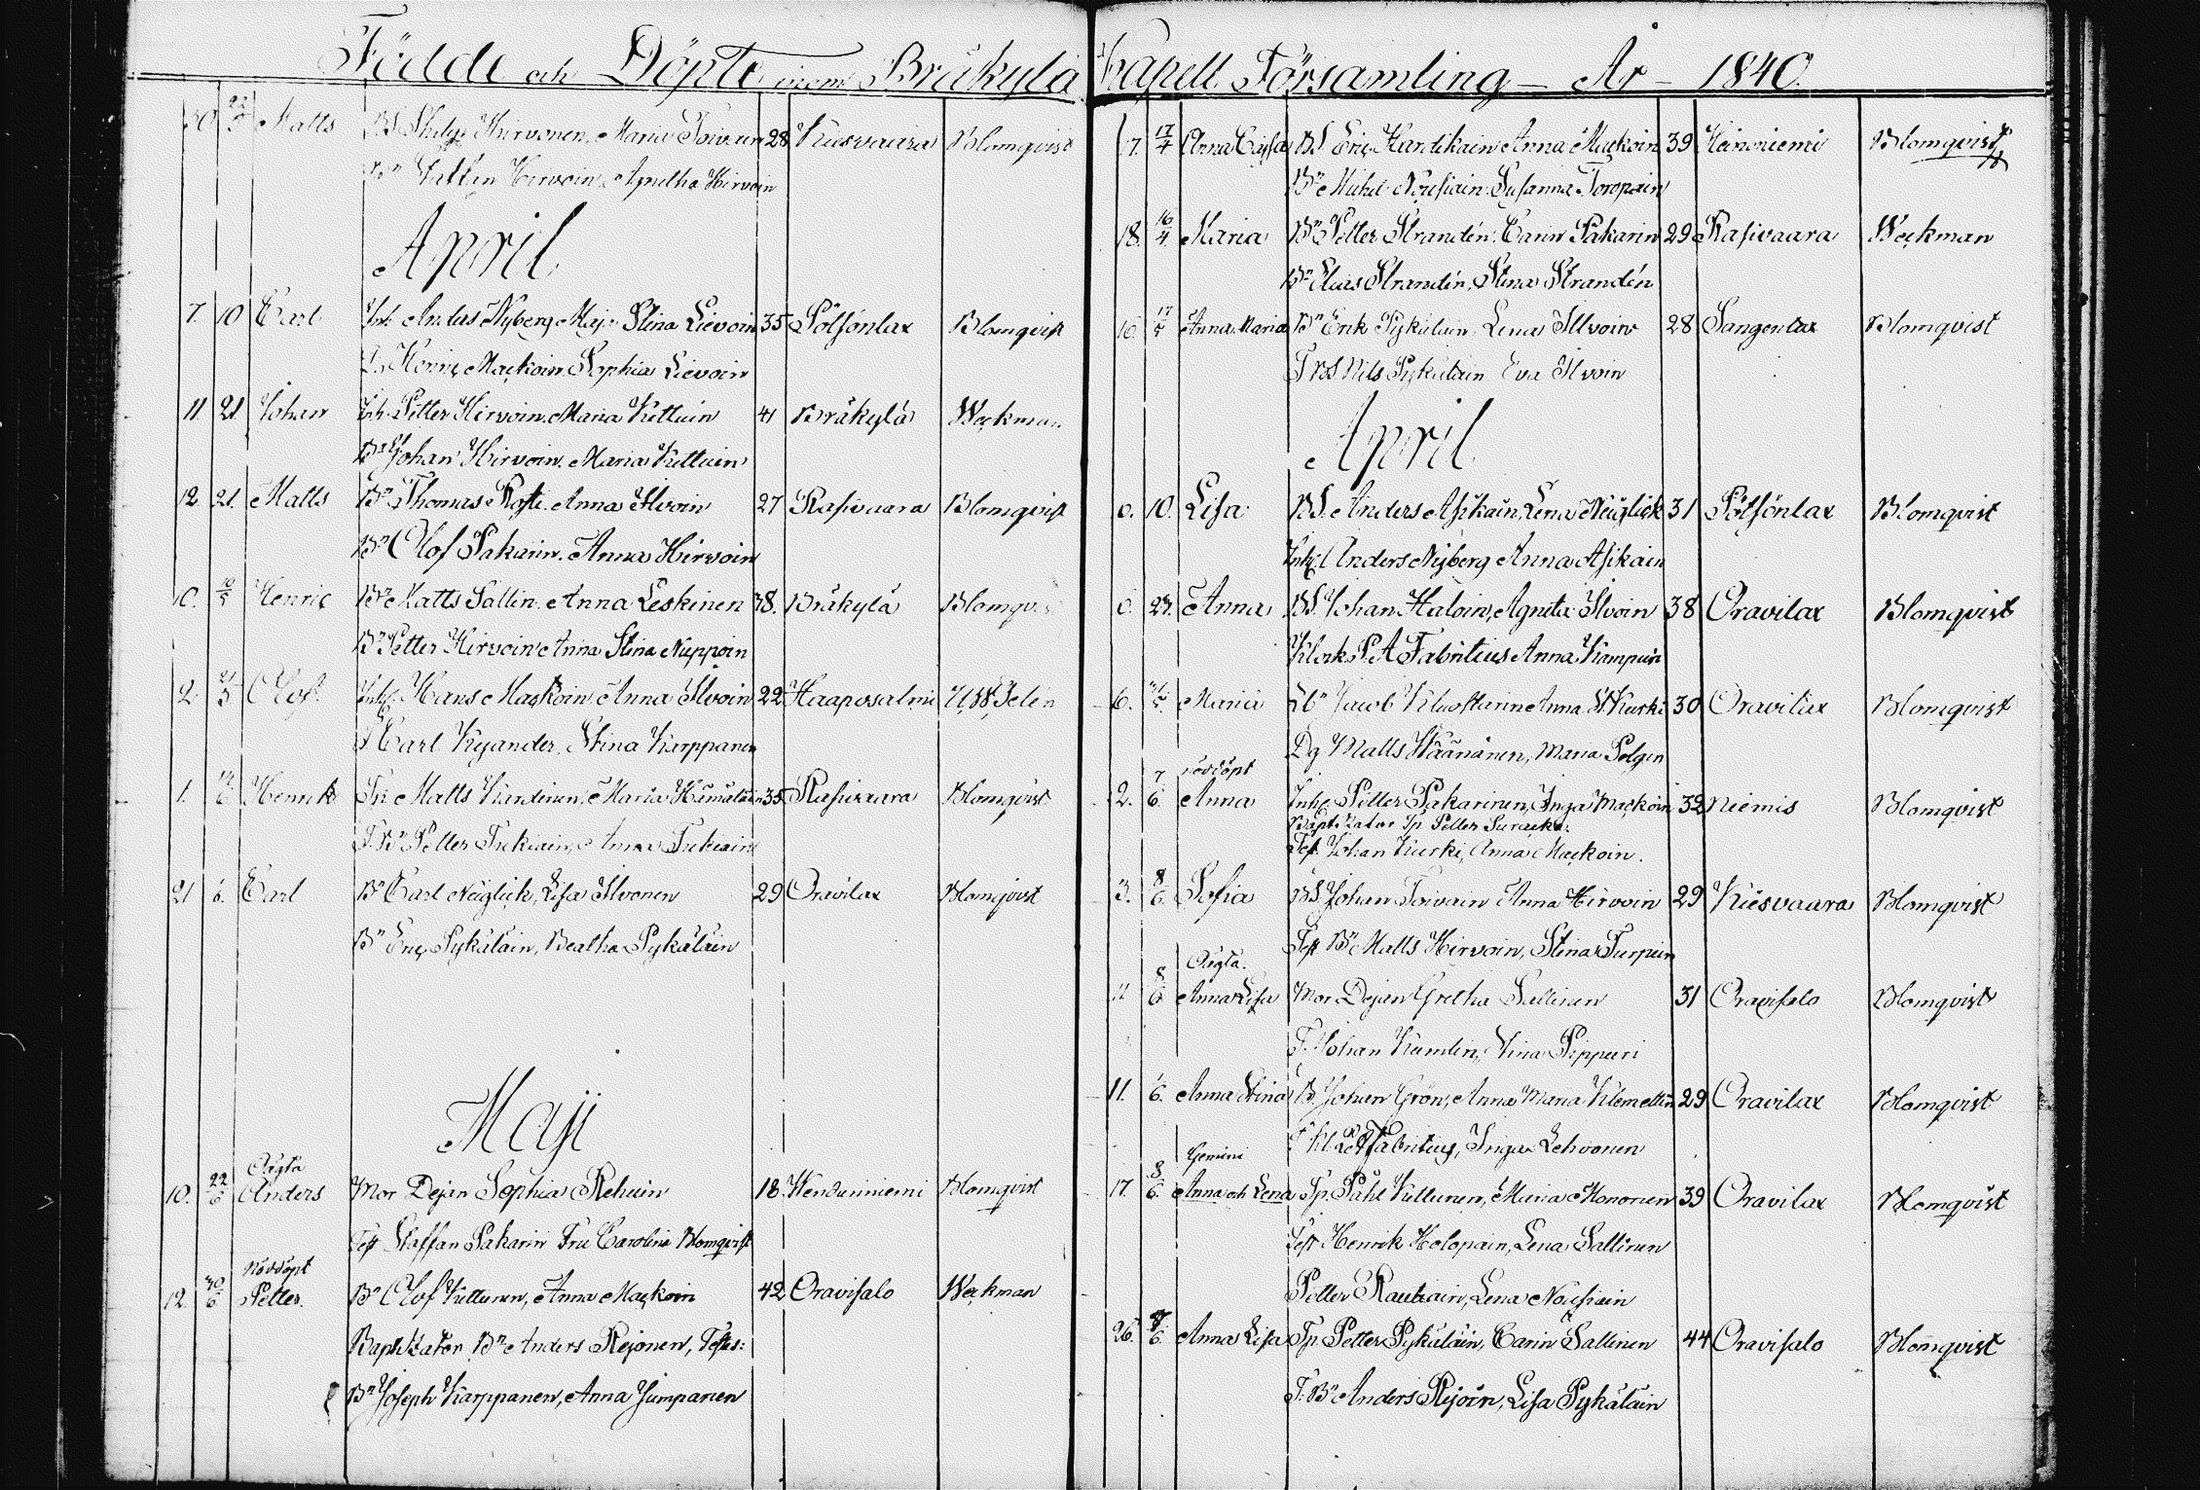 Födde och Döpte inom Bräkylä Kapell Församling – År – 1840.
30 22/5 Matts BS. Philip Hirvonen, Maria Toivain 28 Kiesvaara Blomqvist
Bn Hirvoin, Agnetha Hirvoin
April
7. 10 Carl Inh. Anders Nyberg, Maja Stina Lievoin 35 Pölsönlax Blomqvist
Henric Mackoin, Sophia Lievoin
11. 21 Johan Inh. Petter Hirvoin, Maria Kettuin 41 Bräkylä Weckman
Bn Johan Hirvoin, Maria Kettuin
12 21. Matts Bn Thomas Rosti, Anna Ilvoin 27 Rasivaara Blomqvist
Bn Olof Pakarin, Anna Hirvoin
10/5 Henric Bn Matts Sallin, Anna Leskinen 38. Bräkylä Blomqvist
Bn Petter Hirvoin, Anna Stina Nuppoin
2 21/5 Olof Inh. Hans Mackoin, Anna Ilvoin 22 Haaposalmi
Carl Kyander, Stina Karppanen
1. 14/6 Henrik Matts Kardinen, Maria Hämäläin 35 Rasivaara Blomqvist
T. Bn Petter Tukiain, Anna Tukiain
21 6. Carl Bn Carl Neiglick, Lisa Ilvonen 29 Oravilax Blomqvist
Bn Eric Pykäläin, Beatha Pykäläin
Maji
Oägta
10. 22/6 Anders Mor Dejan Sophia Rehuin 18. Hendunniemi Blomqvist
Test Staffan Pakarin Fru Carolina Blomqvist
Nöddöpt
12. 30/6 Petter. Bn Olof Kettunen, Anna Mackoin 42 Oravisalo Weckman
Baptizator Bn Anders Rejonen, Testes:
Bn Joseph Karppanen, Anna Jumpanen
17. 17/4 Anna Cajsa BS Eric Hardikain Anna Mackoin 39 Heinoniemi Blomqvist
Bn Mickel Nousiain, Susanna Toropain
18. 16/4 Maria Bn Petter Strandén, Carin Pakarin 29 Rasivaara Weckman
Bn Elias Strandén, Stina Strandén
16. 17/5 Anna Maria Bn Erik Pykäläin, Lena Ilvoin 28 Sangenlax Blomqvist
T BS Nils Pykäläin Eva Ilvoin
April
10. Lisa BS. Anders Asikain, Lena Neiglick 31 Pölsönlax Blomqvist
Inh. Anders Nyberg Anna Asikain
27. Anna BS. Johan Haloin, Agneta Ilvoin 38 Oravilax Blomqvist
Klock P A Fabritius Anna Kampuin
6. Maria Jacob Anna St Kurki 30 Oravilax Blomqvist
Dg Matts Väänänen, Maria Polgen
nöddöpt
2. 7/6. Anna Inh. Petter Pakarinen, Inga Mackoin 32 Niemis Blomqvist
Baptizator Sp. Petter
Test Johan Kurki, Anna Mackoin.
3. 8/6. Sofia BS. Johan Toivain Anna Hirvoin 29 Kiesvaara Blomqvist
Test Bn Matts Hirvoin, Stina Turpein
Oägta.
8/6 Anna Lisa Mor Dejan Gretha Sallinen 31 Oravisalo Blomqvist
T. Johan Kumlin, Stina Pippuri
11. 6. Anna Stina B. Johan Grön, Anna Maria Klemettin 29 Oravilax Blomqvist
Fabritius, Inga Lehvonen
Gemini
17. 8/6. Anna och Lena Sp. Påhl Kettunen, Maria Mononen 39 Oravilax Blomqvist
Test Henrik Holopain, Lena Sallinen
Petter Rautiain, Lena Nousiain
26. 7/6 Anna Lisa Sp. Petter Pykäläin, Carin Sallinen 44 Oravisalo Blomqvist
T. Bn Anders Rejoin, Lisa Pykäläin